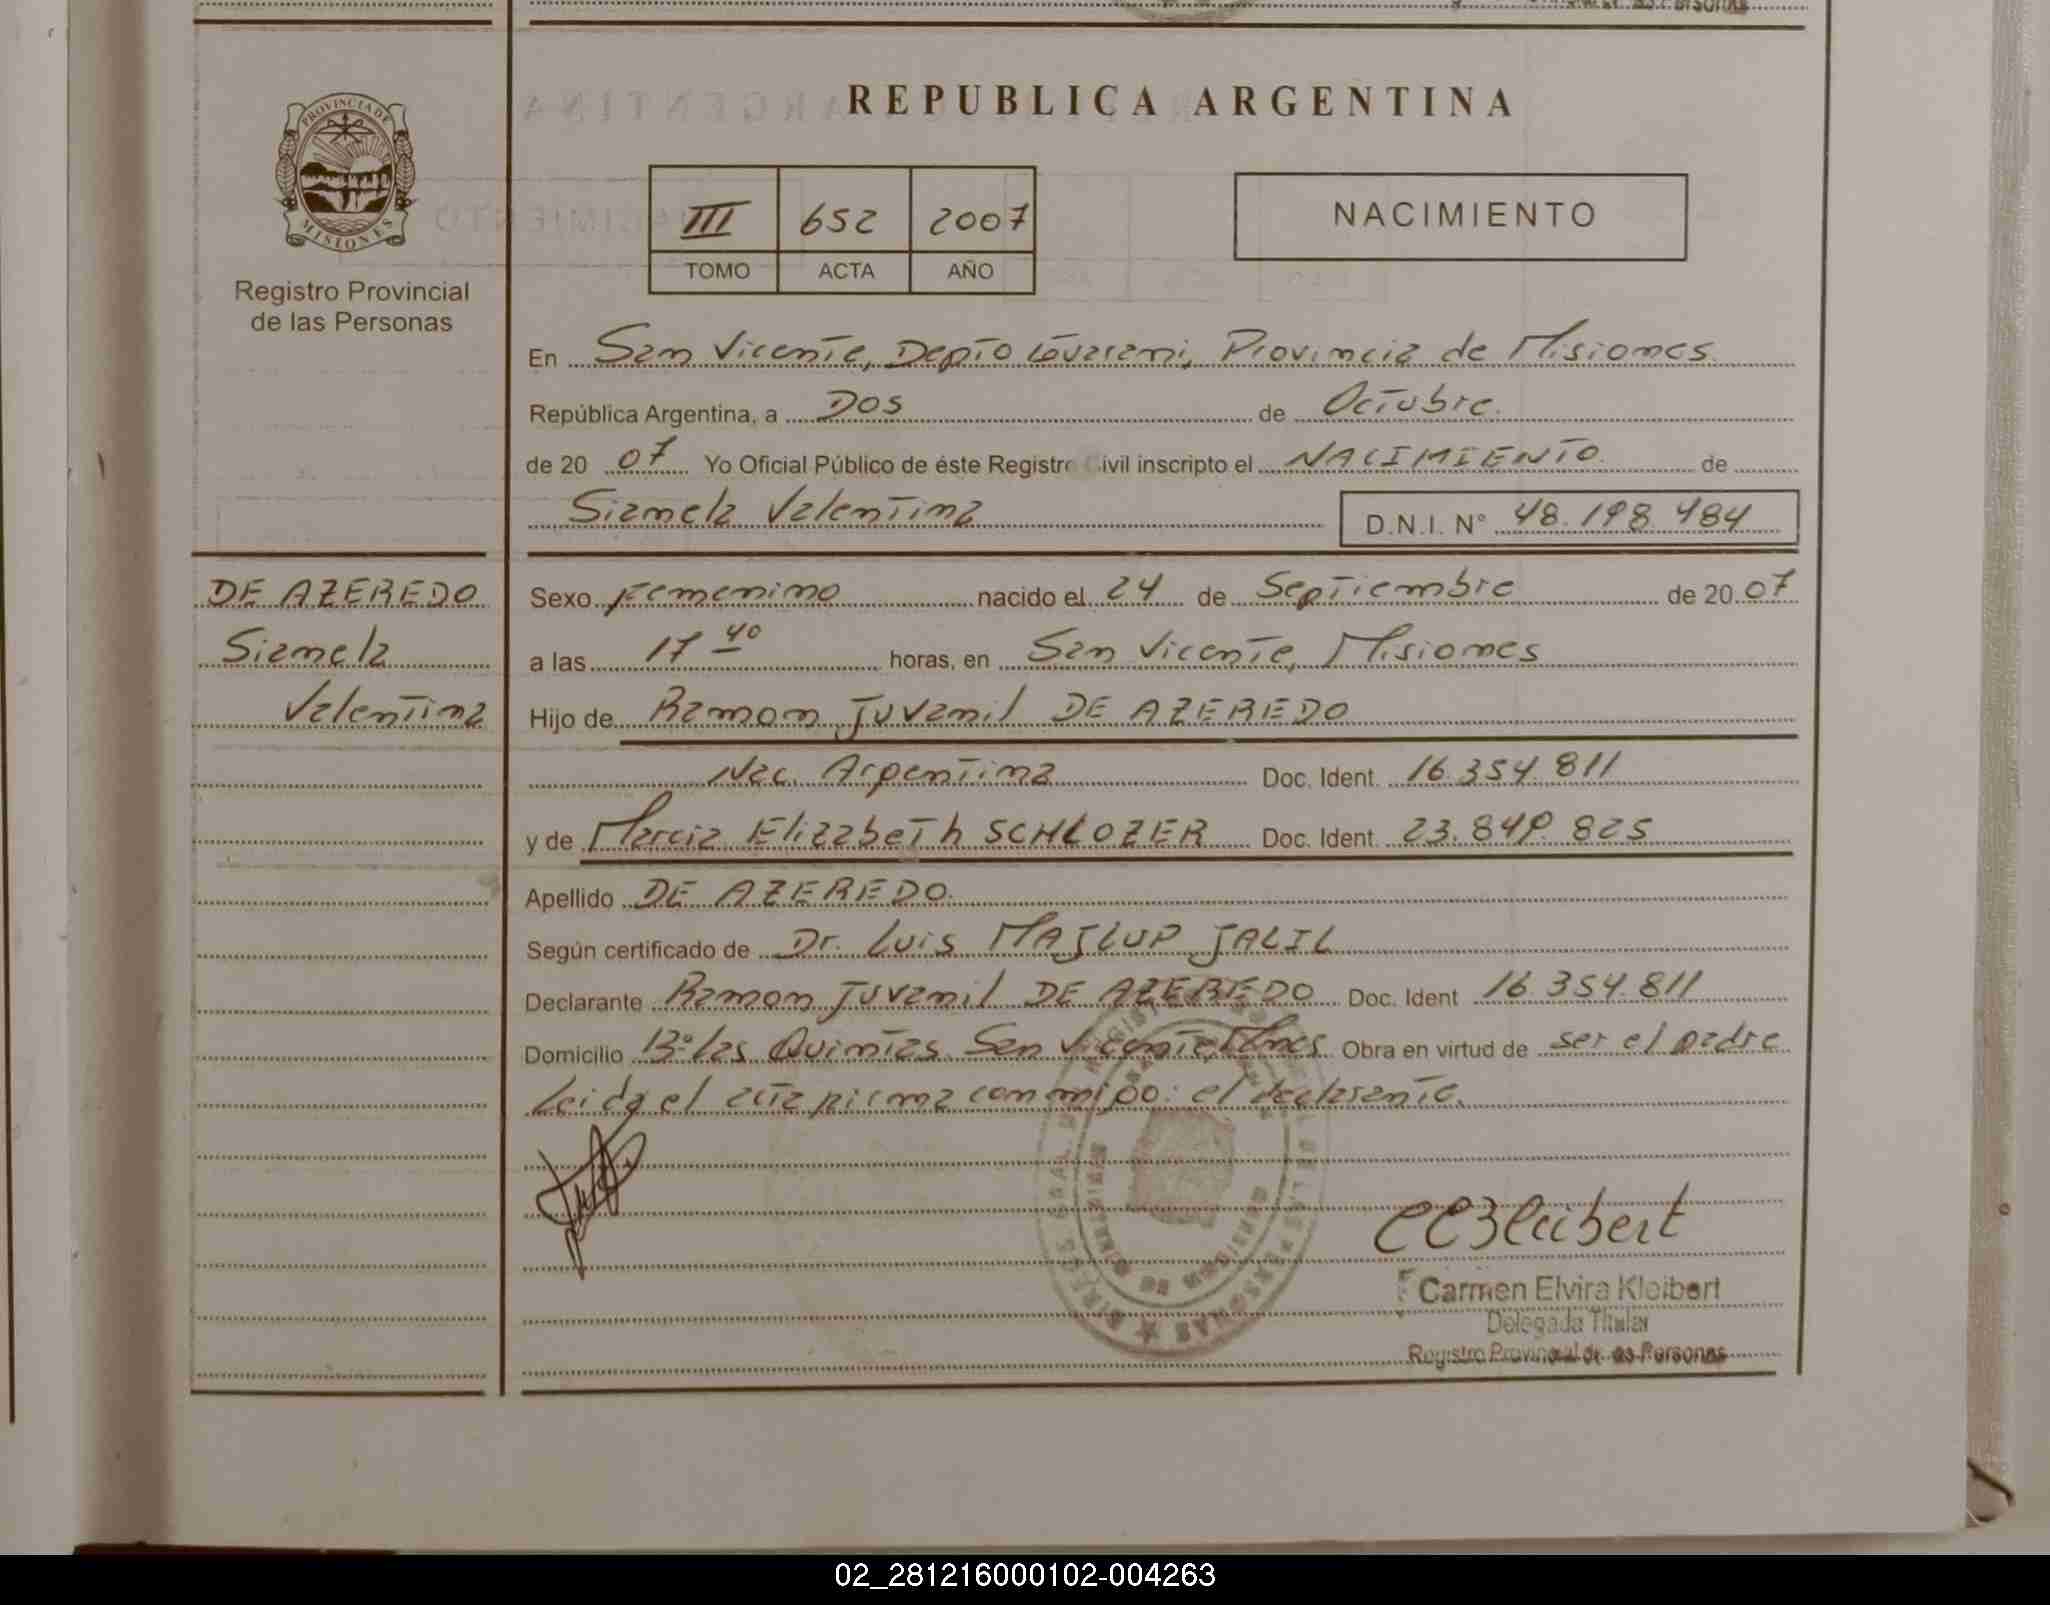 REPUBLICA ARGENTINA
PROVINCIA DE
MISIONES
Registro Provincial
de las Personas
III 652 2007
TOMO ACTA AÑO
NACIMIENTO
En San Vicente, Depto Guarani, Provincia de Misiones
República Argentina, a Dos de Octubre.
de 20 07 Yo Oficial Público de éste Registro Civil inscripto el NACIMIENTO de
Sianela Valentina D.N.I. N° 48.198.484
DE AZEREDO
Sianela
Valentina
Sexo Femenino nacido el 24 de Septiembre de 20 07
a las 17 40 horas, en San Vicente, Misiones
Hijo de Ramon Juvenil DE AZEREDO
Nac. Argentina Doc. Ident. 16.354.811
y de Marcia Elizabeth SCHLOZER Doc. Ident. 23.849.825
Apellido DE AZEREDO.
Según certificado de Dr. Luis MAJLUP JALIL
Declarante Ramon Juvenil DE AZEREDO Doc. Ident 16.354.811
Domicilio B° las Quintas San Vicente, Mnes Obra en virtud de ser el padre
Leida el acta firma conmigo: el declarante.
CEKleibert
Carmen Elvira Kleibert
Delegada Titular
Registro Provincial de las Personas
02_281216000102-004263